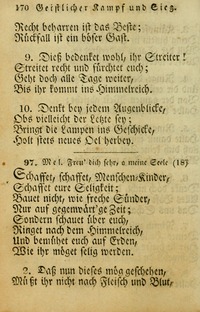 170 Geistlicher Kampf und Sieg.
Recht beharren ist das Beste;
Rückfall ist ein böser Gast.
9. Dieß bedenket wohl, ihr Streiter!
Streitet recht und fürchtet euch;
Geht doch alle Tage weiter,
Bis ihr kommt ins Himmelreich.
10. Denkt bey jedem Augenblicke,
Obs vielleicht der Letzte sey;
Bringt die Lampen ins Geschicke,
Holt stets neues Oel herbey.
97. Mel. Freu' dich sehr, o meine Seele (18)
Schaffet, schaffet, Menschen-Kinder,
Schaffet eure Seligkeit;
Bauet nicht, wie freche Sünder,
Nur auf gegenwärt'ge Zeit;
Sondern schauet über euch,
Ringet nach dem Himmelreich,
Und bemühet euch auf Erden,
Wie ihr möget selig werden.
2. Daß nun dieses mög geschehen,
Müßt ihr nicht nach Fleisch und Blut,